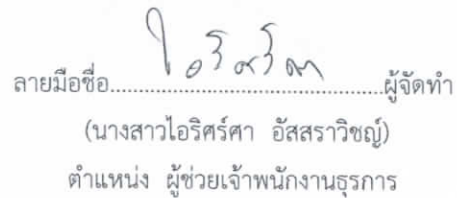 ลายมือชื่อ......................................................ผู้จัดทำ
(นางสาวไอริศร์ศา อัสสราวิชญ์)
ตำแหน่ง ผู้ช่วยเจ้าพนักงานธุรการ